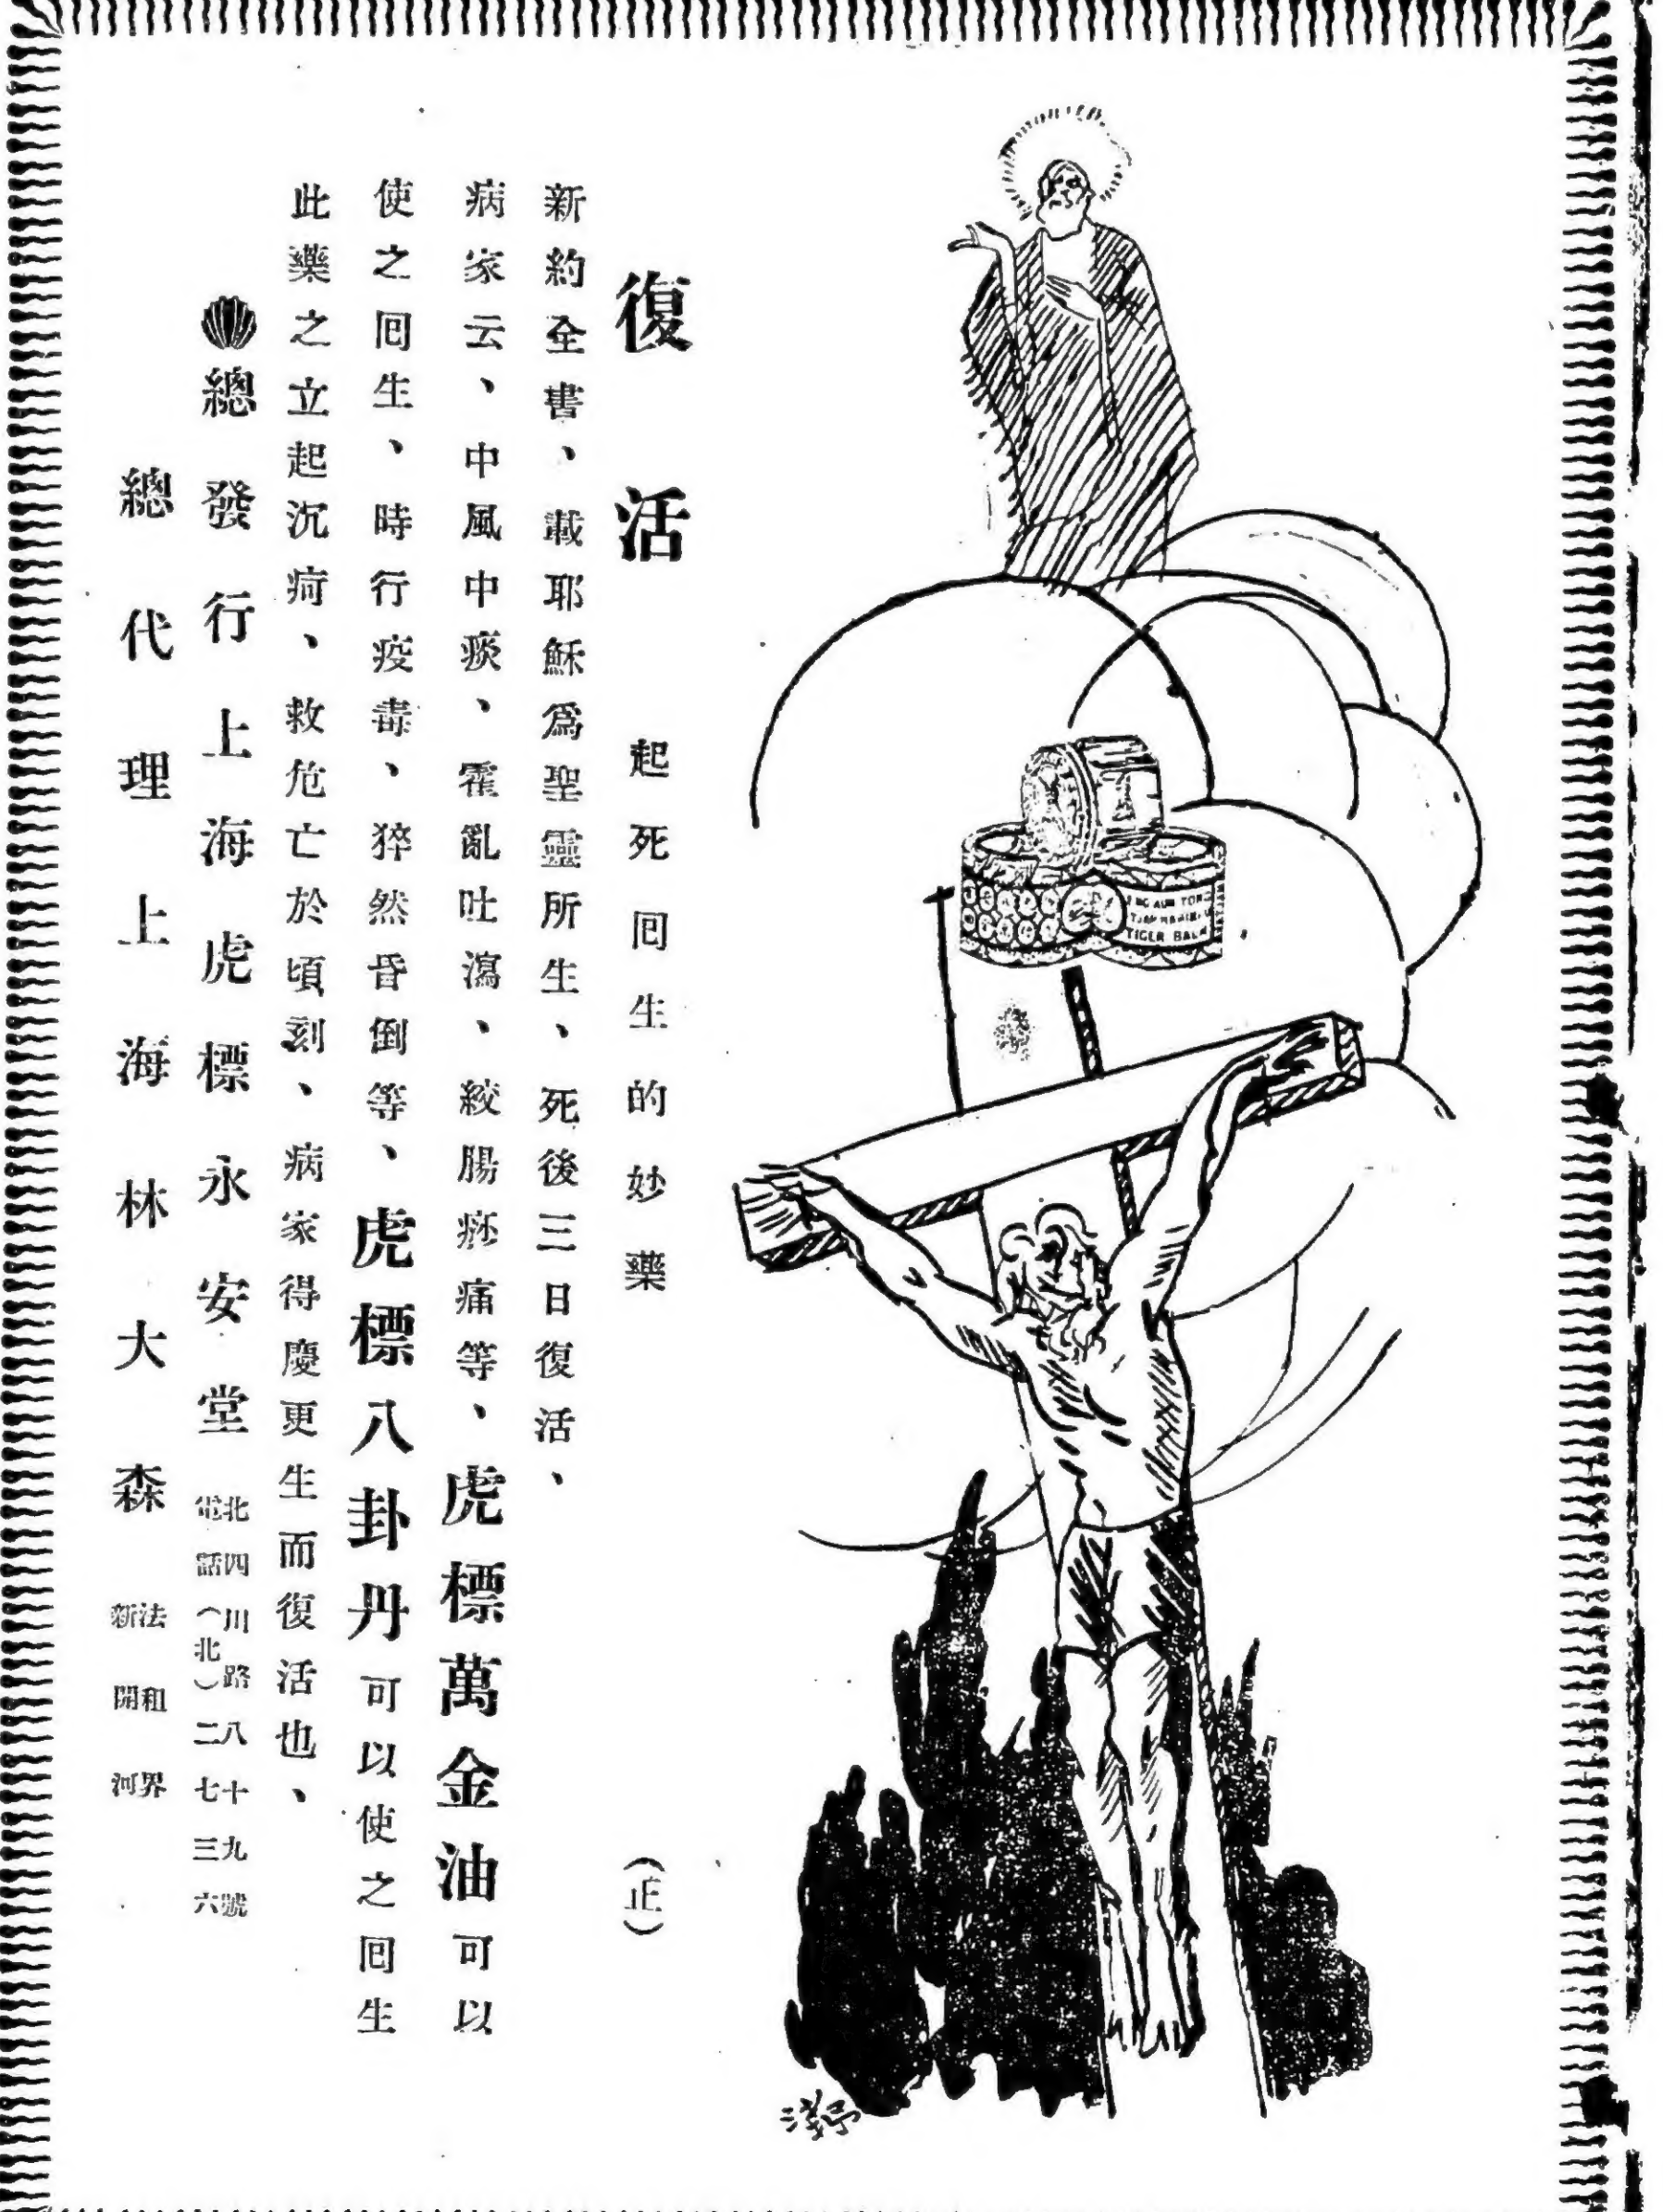 復活 起死囘生的妙藥 (正)
新約全書、載耶穌爲聖靈所生、死後三日復活、
病家云、中風中痰、霍亂吐瀉、絞腸痧痛等、虎標萬金油可以
使之囘生、時行疫毒、猝然昏倒等、虎標八卦丹可以使之囘生
此藥之立起沉疴、救危亡於頃刻、病家得慶更生而復活也、
總發行上海虎標永安堂
北四川路八十九號
電話(北)二七三六
總代理上海林大森
法租界
新開河
TIGER BALM